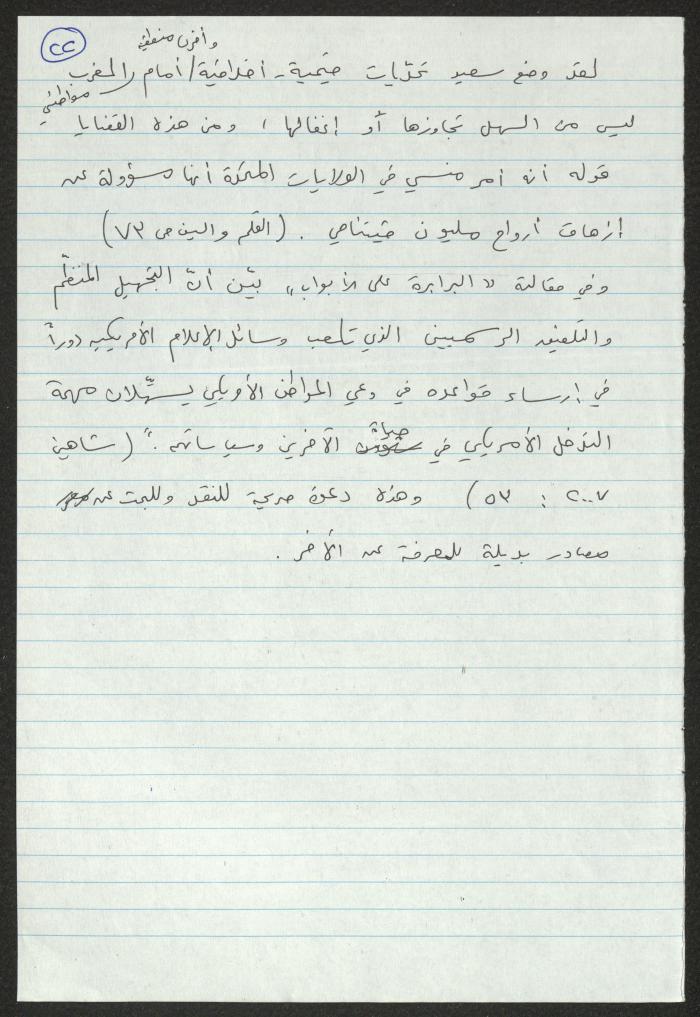 ٢٢
وأخرى منطقية
لقد وضع سعيد تحدّيات قيمية - أخلاقية / أمام المغرب
مواطني
ليس من السهل تجاوزها أو إغفالها، ومن هذه القضايا
قوله أنه أمر منسي في الولايات المتحدة أنها مسؤولة عن
إزهاق أرواح مليون فيتنامي . (القلم والسيف ص ٧٣)
وفي مقالة "البرابرة على الأبواب" بيّن أنّ التجهيل المنظّم
والتلفيق الرسميين الذي تلعب وسائل الإعلام الأمريكية دوراً
في إرساء قواعده في وعي المواطن الأمريكي يسهّلان مهمة
التدخل الأمريكي في حياة الآخرين وسياساتهم ." (شاهين
٢٠٠٧ : ٥٣) وهذه دعوة صريحة للنقد وللبحث عن
مصادر بديلة للمعرفة عن الآخر .